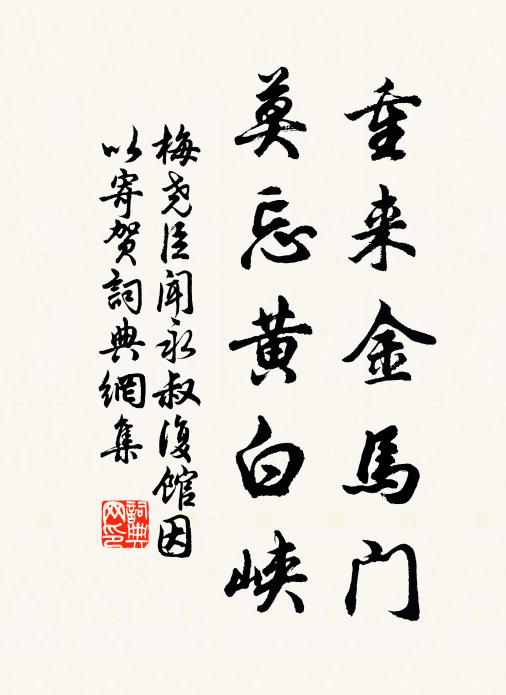 重来金馬门
莫忘黄白峡
梅尧臣闻永叔復馆因
以寄贺詞典網集
詞典
网印